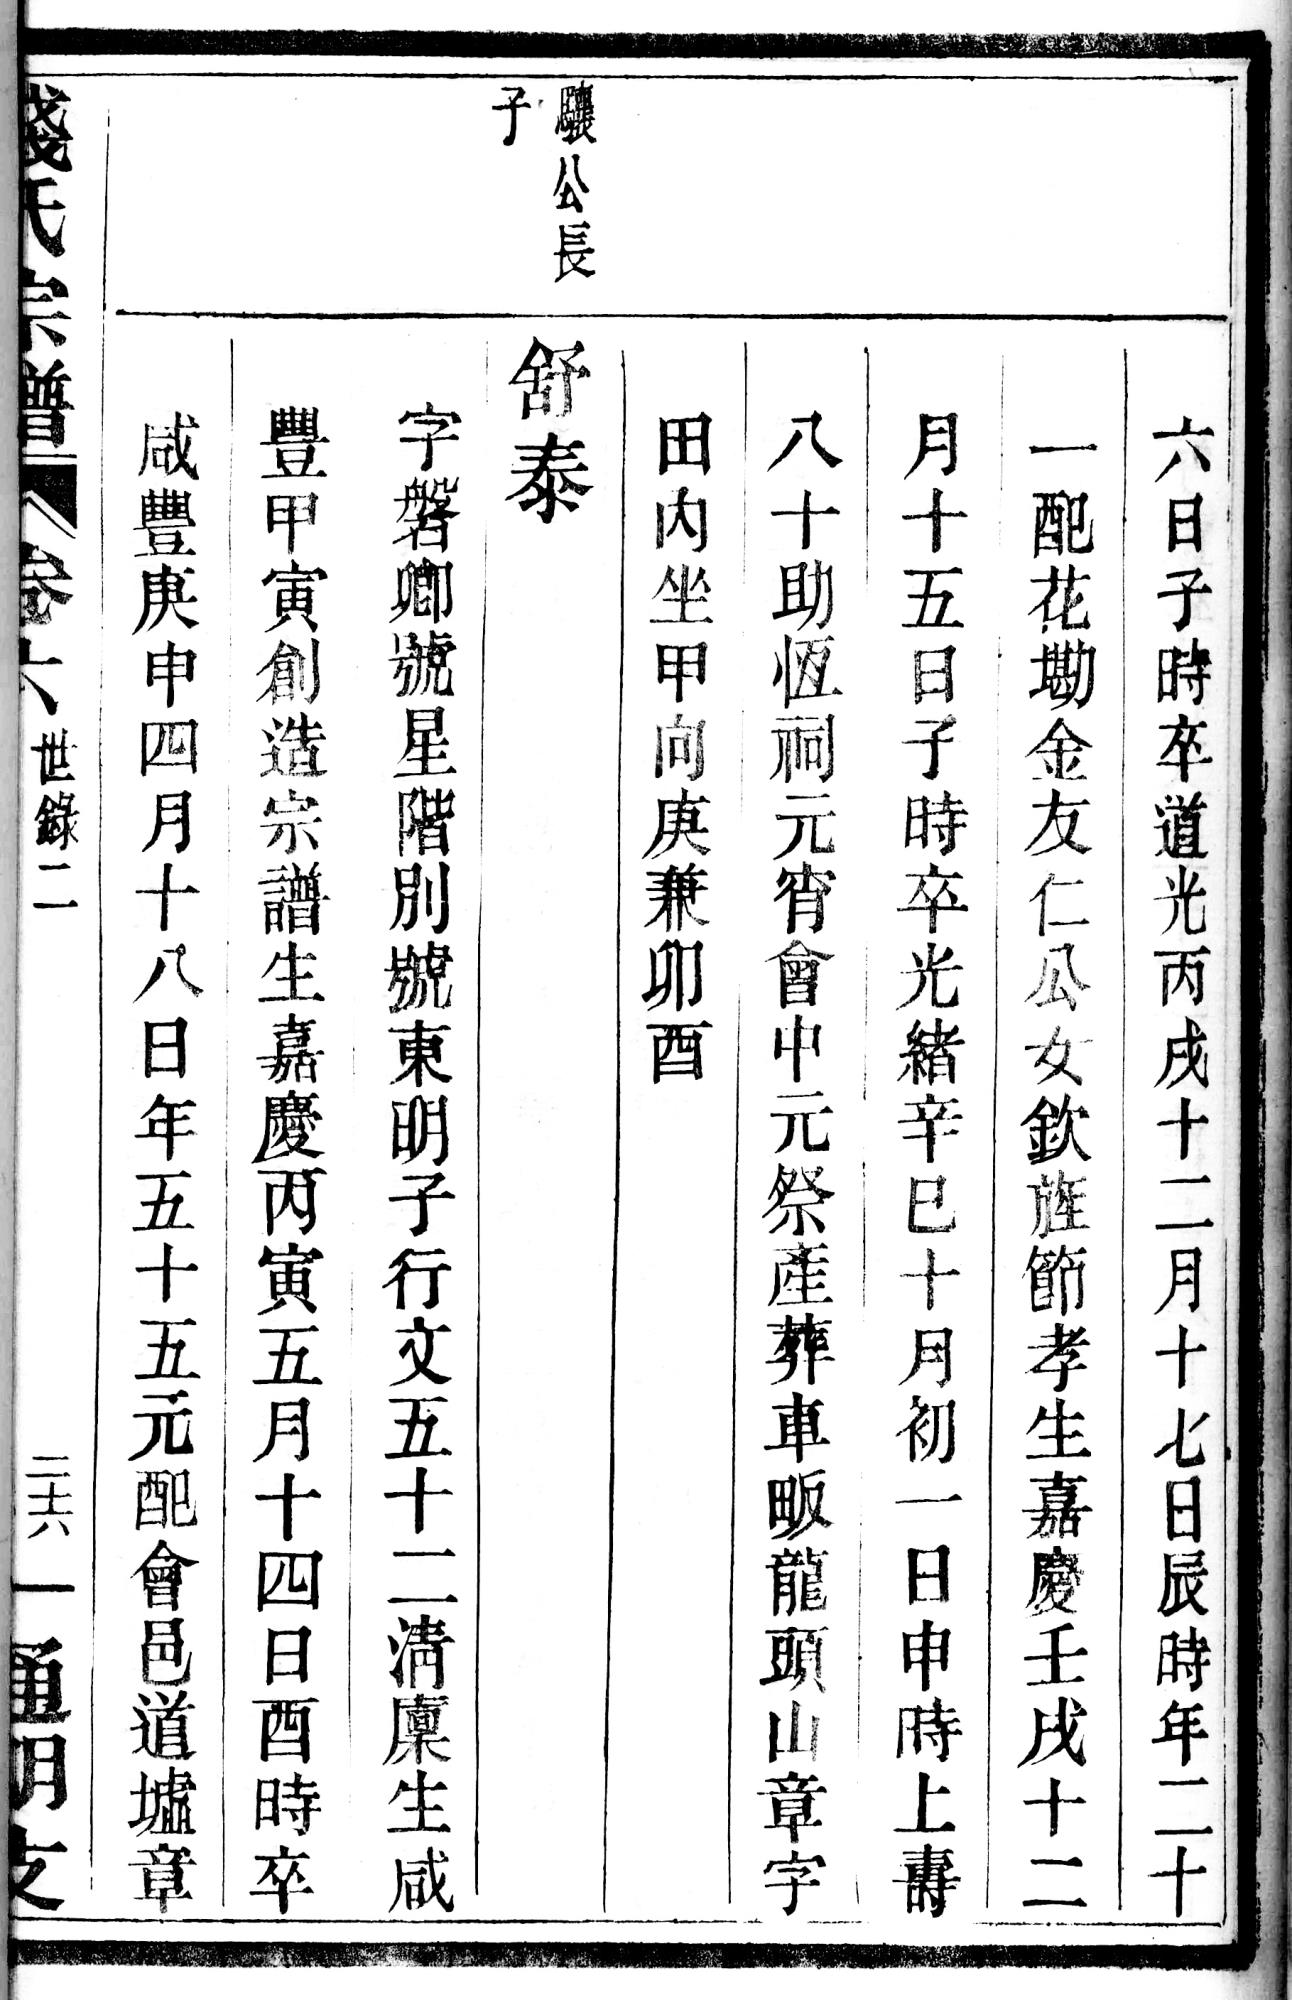 六日子時卒道光丙戌十二月十七日辰時年二十
一配花塢金友仁公女欽旌節孝生嘉慶壬戌十二
月十五日子時卒光緒辛巳十月初一日申時上壽
八十助恆祠元宵會中元祭產葬車畈龍頭山章字
田內坐甲向庚兼卯酉
驤公長
子
舒泰
字磐卿號星階別號東明子行文五十二清廩生咸
豐甲寅創造宗譜生嘉慶丙寅五月十四日酉時卒
咸豐庚申四月十八日年五十五元配會邑道墟章
錢氏宗譜 卷六 世錄二 二十六 一 通明支